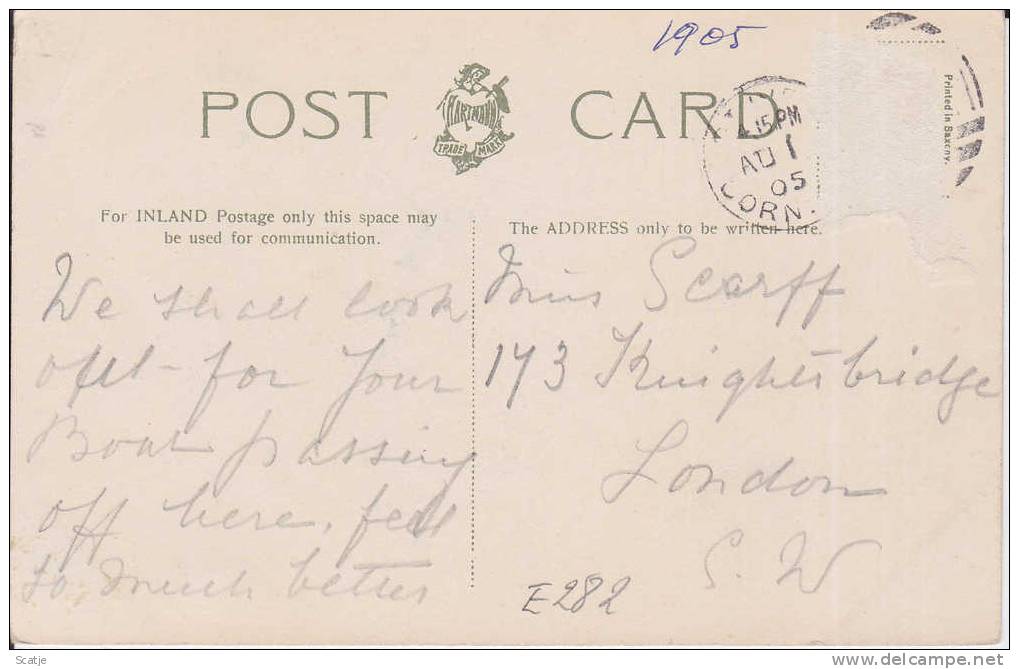 1905
POST CARD
HARTMANN
TRADE MARK
4.15 PM
AU 1
05
CORN.
Printed in Saxony.
For INLAND Postage only this space may
be used for communication.
The ADDRESS only to be written here.
We shall look
out for your
Boat passing
off here, feel
so much better
Miss Scarff
173 Knightsbridge
London
S. W
E282
Scatje
delcampe.net